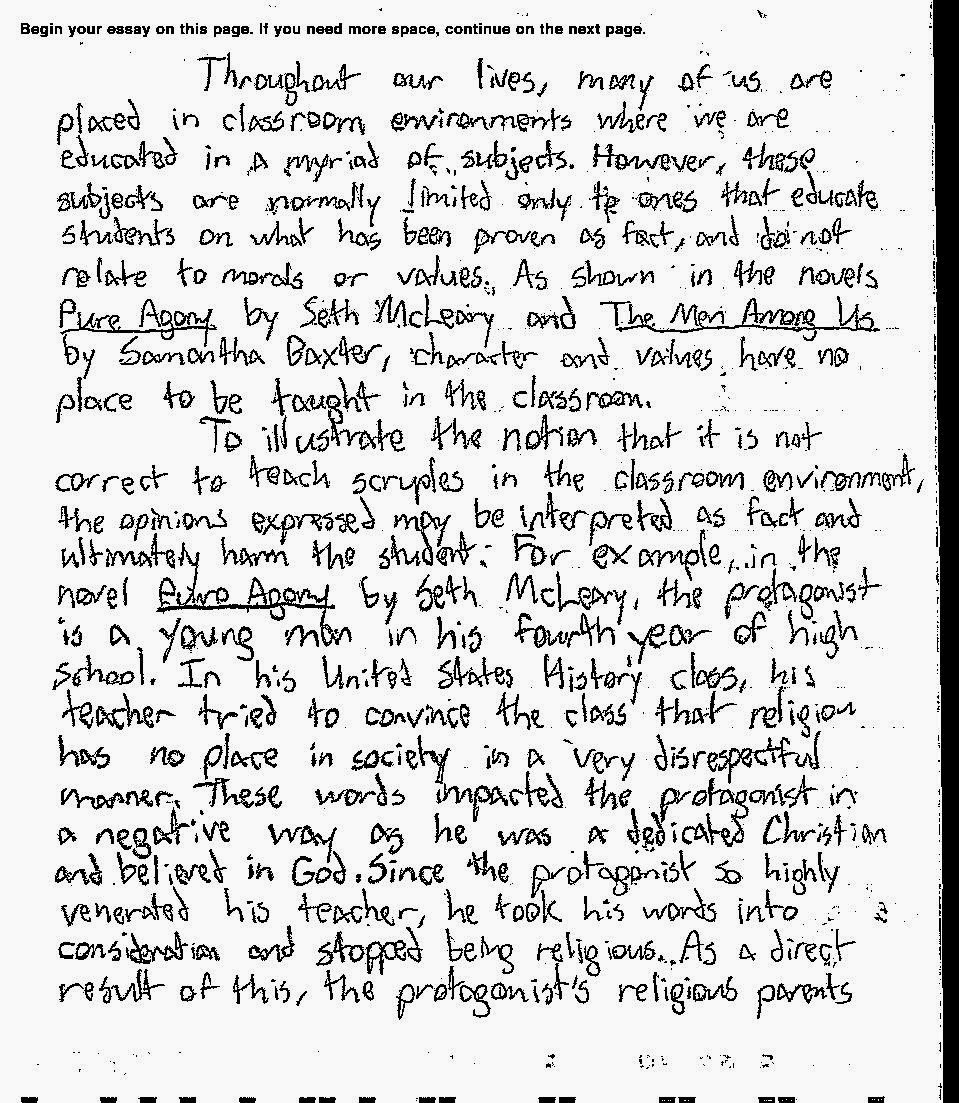 Begin your essay on this page. If you need more space, continue on the next page.
Throughout our lives, many of us are
placed in classroom environments where we are
educated in a myriad of subjects. However, these
subjects are normally limited only to ones that educate
students on what has been proven as fact, and do not
relate to morals or values. As shown in the novels
Pure Agony by Seth McLeary and The Men Among Us
by Samantha Baxter, character and values have no
place to be taught in the classroom.
To illustrate the notion that it is not
correct to teach scruples in the classroom environment,
the opinions expressed may be interpreted as fact and
ultimately harm the student. For example, in the
novel Pure Agony by Seth McLeary, the protagonist
is a young man in his fourth year of high
school. In his United States History class, his
teacher tried to convince the class that religion
has no place in society in a very disrespectful
manner. These words impacted the protagonist in
a negative way as he was a dedicated Christian
and believed in God. Since the protagonist so highly
venerated his teacher, he took his words into
consideration and stopped being religious. As a direct
result of this, the protagonist's religious parents